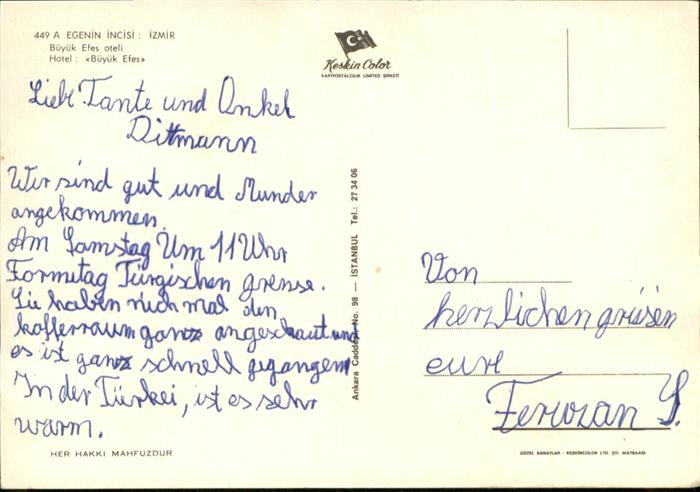 449 A EGENİN İNCİSİ : İZMİR
Büyük Efes oteli
Hotel : «Büyük Efes»
Keskin Color
KARTPOSTALCILIK LİMİTED ŞİRKETİ
Liebe Tante und Onkel
Dittmann
Wir sind gut und Munder
angekommen.
Am Samstag Um 11 Uhr
Formitag Türgischen grense.
Sie haben nich mal den
kofferraum ganz angeschaut und
es ist ganz schnell gegangen
In der Türkei, ist es sehr
warm.
HER HAKKI MAHFUZDUR
Ankara Caddesi No. 98 — İSTANBUL Tel.: 27 34 06
Von
herzlichen grüsen
eure
Ferwzan S.
GÜZEL SANATLAR - KESKİNCOLOR LTD. ŞTİ. MATBAASI